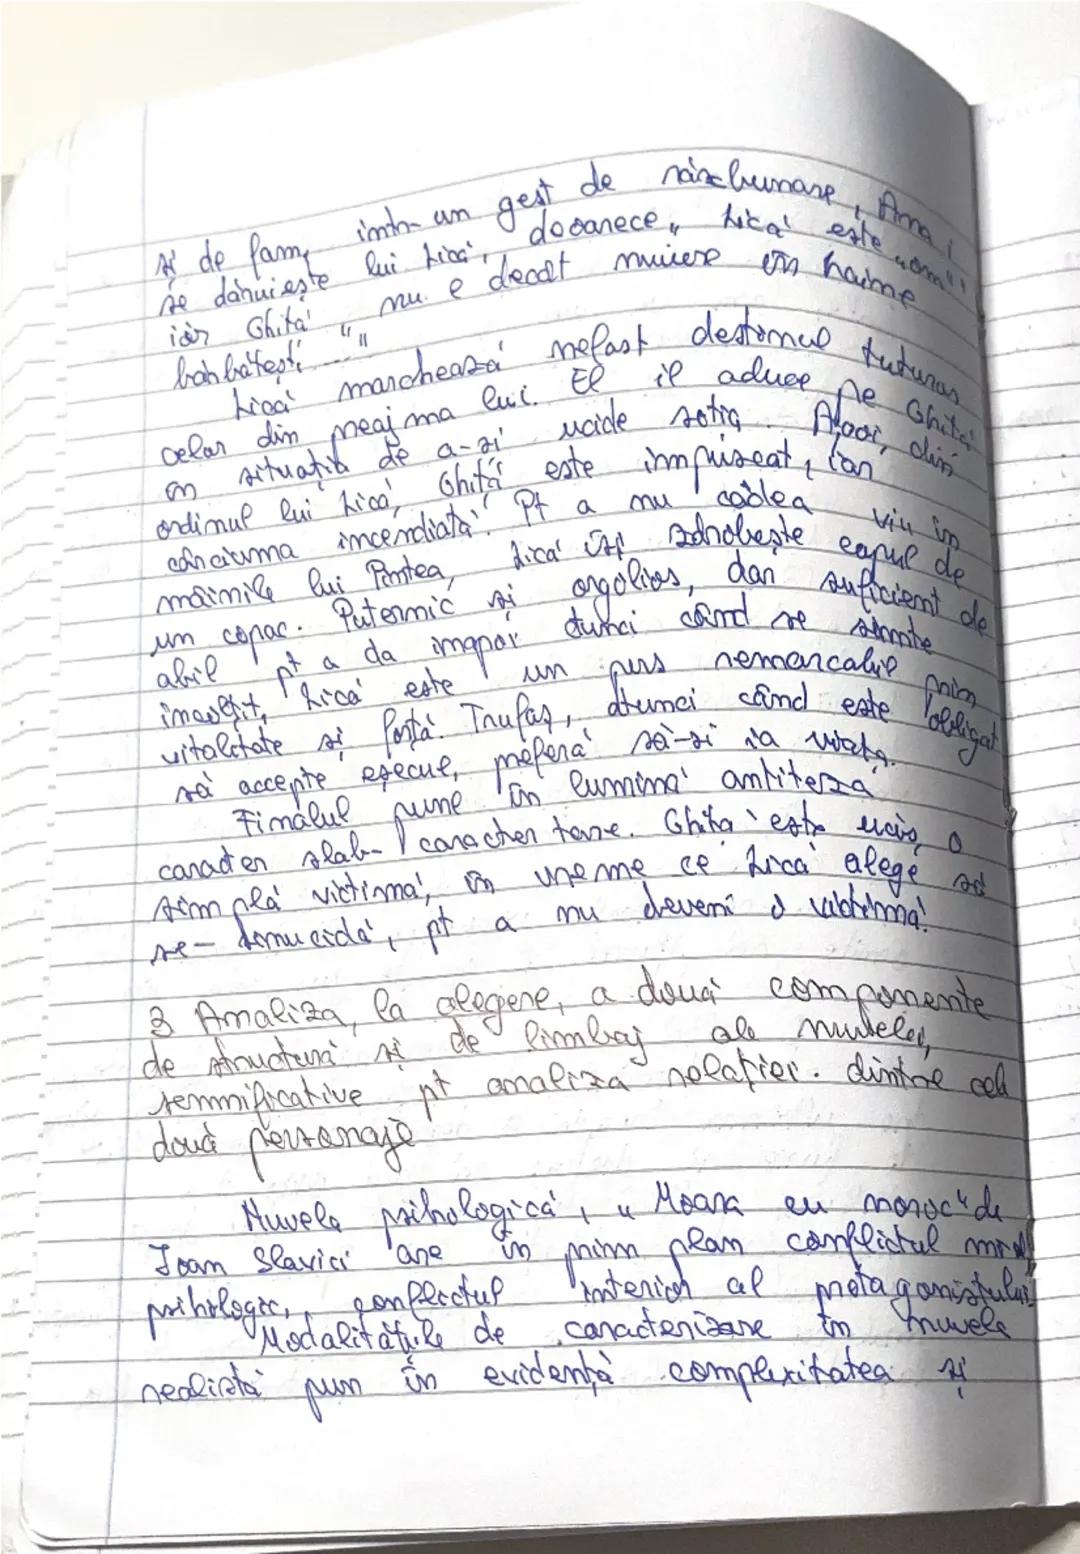 și de fam, într-un gest de răzbunare, Ana
se dăruiește lui Lică, deoarece „Lică este „om"
iar Ghiță „nu e decât muiere în haine
bărbătești..."
Lică marchează nefast destinul tuturor
celor din preajma lui. El îl aduce pe Ghiță
în situația de a-și ucide soția. Apoi, din
ordinul lui Lică, Ghiță este împușcat, iar
cârciuma incendiată. Pt a nu cădea viu în
mâinile lui Pintea, Lică își zdrobește capul de
un copac. Puternic și orgolios, dar suficient de
abil pt a da înapoi atunci când se simte
încolțit, Lică este un pers remarcabil prin
vitalitate și forță. Trufaș, atunci când este obligat
să accepte eșecul, preferă să-și ia viața.
Finalul pune în lumină antiteza
caracter slab- caracter tare. Ghiță este ucis, o
simplă victimă, în vreme ce Lică alege să
se- sinucidă, pt a nu deveni o victimă.
3 Analiza, la alegere, a două componente
de structură și de limbaj ale nuvelei,
semnificative pt analiza relației. dintre cele
două personaje
Nuvela psihologică, „Moara cu noroc" de
Ioan Slavici are în prim plan conflictul moral
psihologic, conflictul interior al protagonistului.
Modalitățile de caracterizare în nuvela
realistă pun în evidență complexitatea și